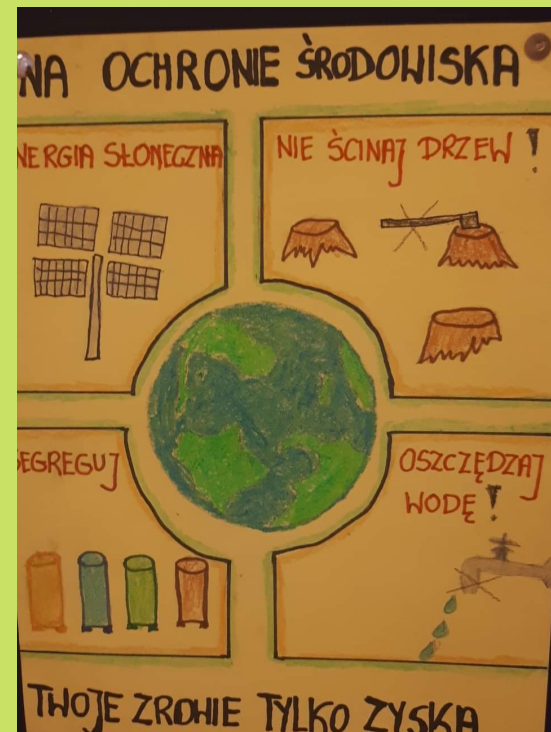 NA OCHRONIE ŚRODOWISKA
NERGIA SŁONECZNA
NIE ŚCINAJ DRZEW !
SEGREGUJ
OSZCZĘDZAJ
WODĘ !
TWOJE ZROWIE TYLKO ZYSKA